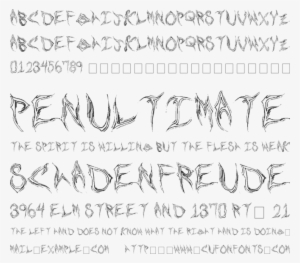 ABCDEFGHIJKLMNOPQRSTUVWXYZ
ABCDEFGHIJKLMNOPQRSTUVWXYZ
0123456789 □□□□□□□□□□□□□□□
PENULTIMATE
THE SPIRIT IS WILLING BUT THE FLESH IS WEAK
SCHADENFREUDE
3964 ELM STREET AND 1370 RT□ 21
THE LEFT HAND DOES NOT KNOW WHAT THE RIGHT HAND IS DOING□
MAIL□EXAMPLE□COM HTTP□□□WWW□CUFONFONTS□COM